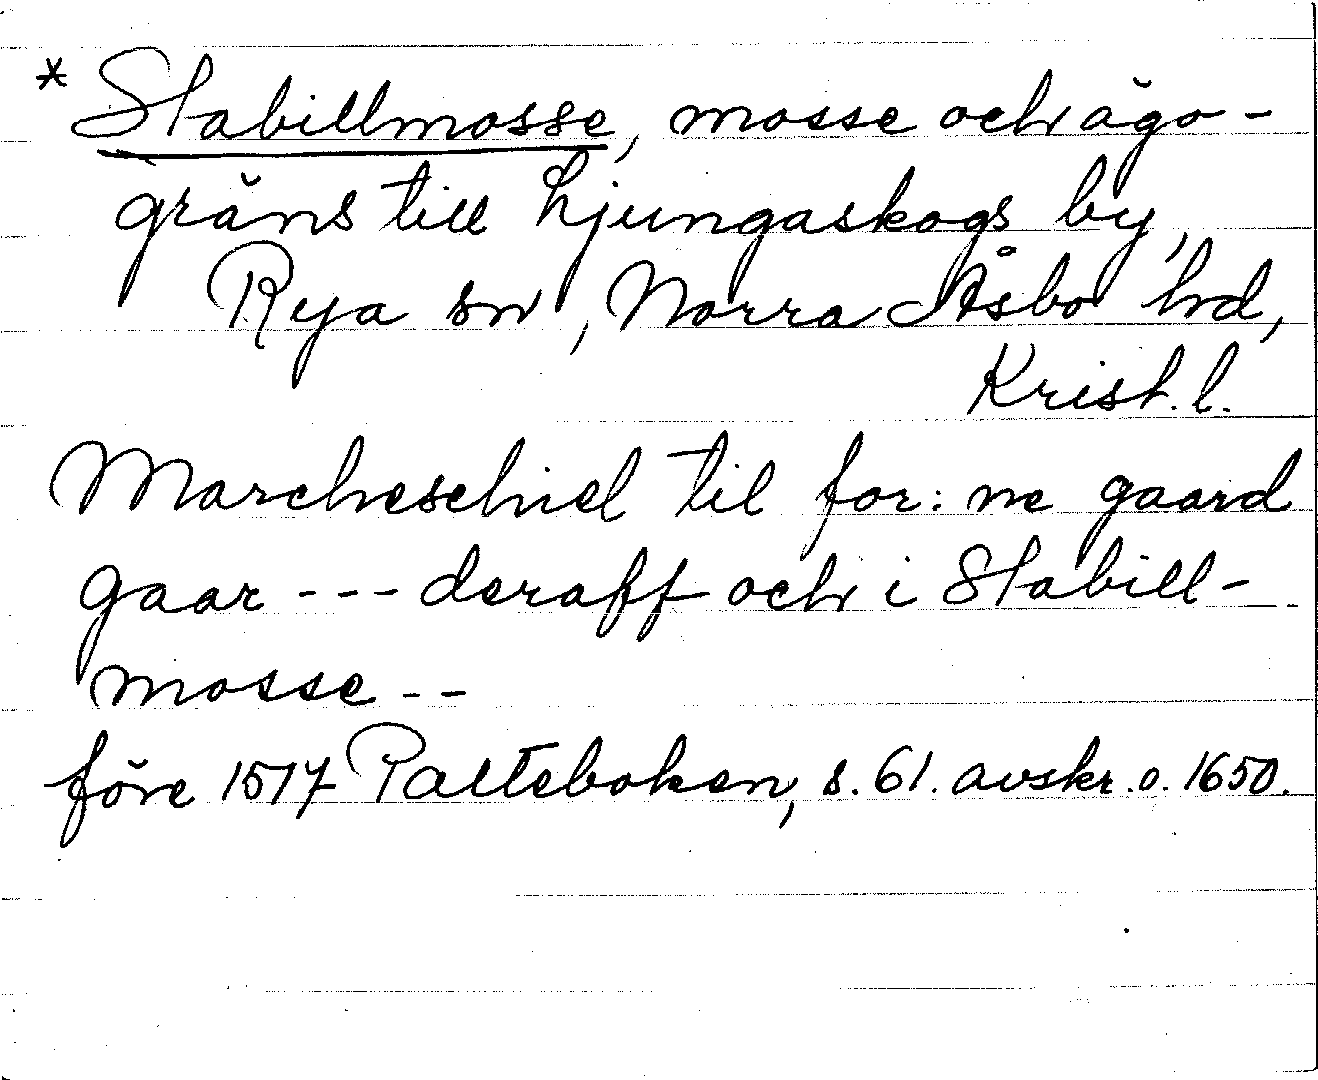 * Stabillmosse, mosse och ägo-
gräns till Ljungaskogs by,
Rya sn, Norra Åsbo hd,
Krist. l.
Marcheschiel til for: ne gaard
gaar --- deraff och i Stabill-
mosse --
före 1517 Palteboken, s. 61. avskr. o. 1650.